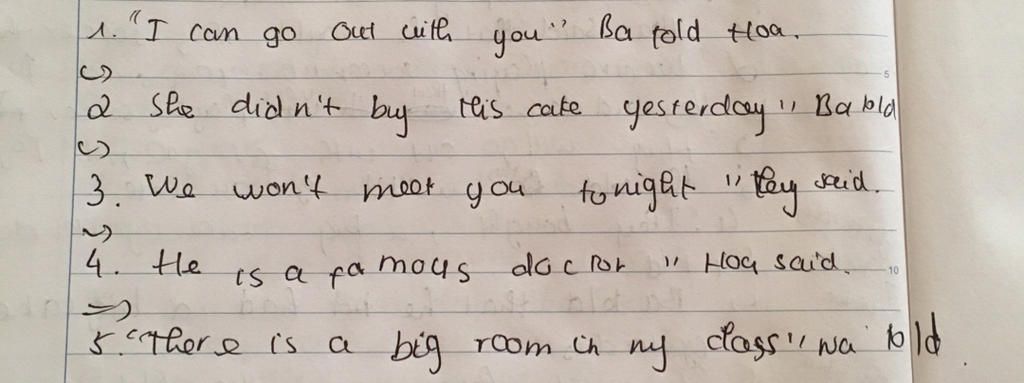 1. "I can go out with you" Ba told Hoa.
↪
2 She didn't buy this cake yesterday" Ba told
↪
3. We won't meet you tonight" they said.
↪
4. He is a famous doctor" Hoa said.
=>
5. "There is a big room in my class" Na told
5
10